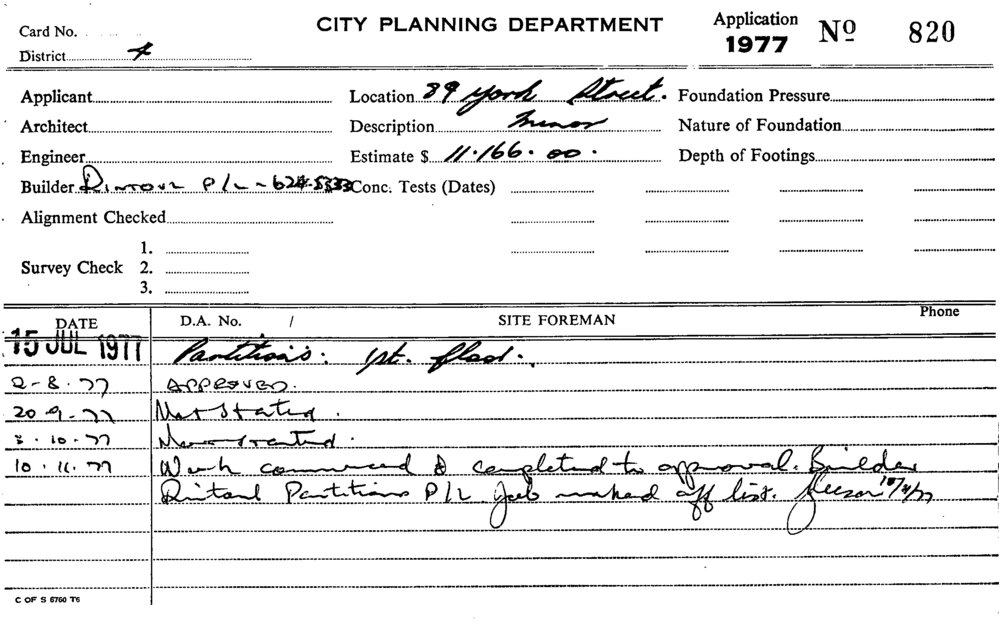 Card No.
District 4
CITY PLANNING DEPARTMENT
Application
1977
Nº 820
Applicant
Location 89 York Street.
Foundation Pressure
Architect
Description Minor
Nature of Foundation
Engineer
Estimate $ 11.166.00.
Depth of Footings
Builder P/L - 624.5333
Conc. Tests (Dates)
Alignment Checked
Survey Check
1.
2.
3.
DATE
D.A. No. /
SITE FOREMAN
Phone
15 JUL 1977 Partitions. 1st. floor.
2-8.77 APPROVED.
20.9.77 Not Started.
3.10.77 Not started.
10.11.77 Work commenced & completed to approval. Builder
Partitions P/L Job marked off list.
C OF S 6760 T6